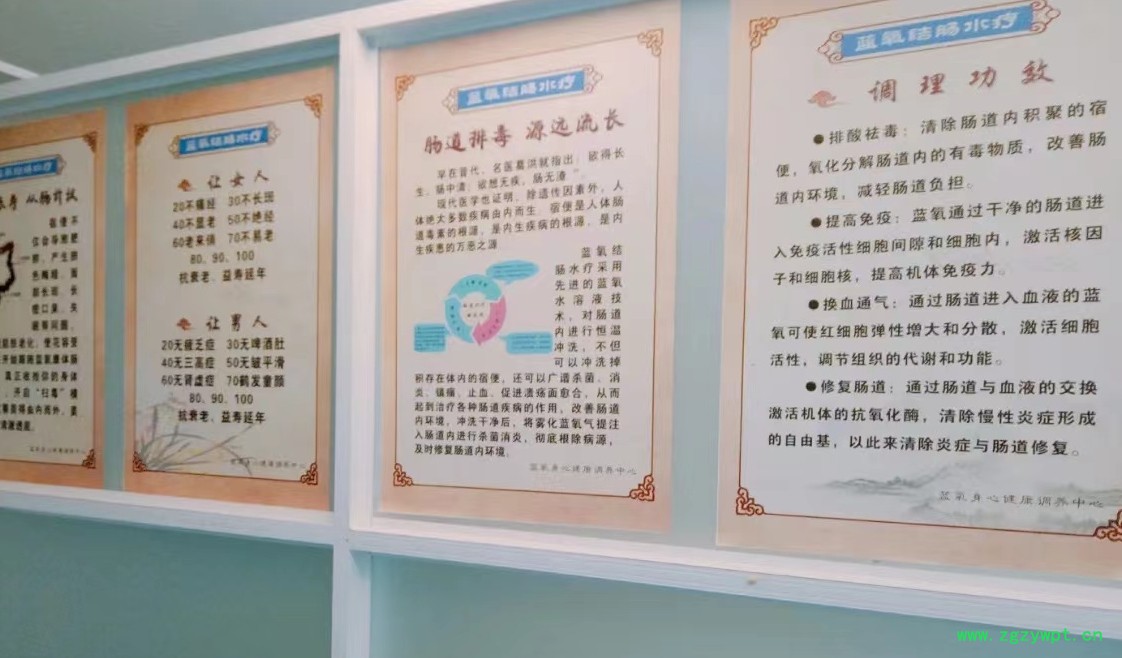 蓝氧结肠水疗
仅会导致便
开启“扫毒”模
蓝氧结肠水疗
让女人
20不痛经 30不长斑
40不显老 50不绝经
60老来俏 70不易老
80、90、100
抗衰老、益寿延年
让男人
20无疲乏症 30无啤酒肚
40无三高症 50无皱平滑
60无肾虚症 70鹤发童颜
80、90、100
抗衰老、益寿延年
蓝氧身心健康调养中心
蓝氧结肠水疗
肠道排毒 源远流长
早在晋代，名医葛洪就指出：欲得长
生，肠中清；欲想无疾，肠无渣”。
现代医学也证明，除遗传因素外，人
体绝大多数疾病由内而生，宿便是人体肠
道毒素的根源，是内生疾病的根源，是内
生疾患的万恶之源
蓝氧结
肠水疗采用
先进的蓝氧
水溶液技
术，对肠道
内进行恒温
冲洗，不但
可以冲洗掉
积存在体内的宿便，还可以广谱杀菌、消
炎、镇痛、止血、促进溃疡面愈合，从而
起到治疗各种肠道疾病的作用，改善肠道
内环境，冲洗干净后，将雾化蓝氧气提注
入肠道内进行杀菌消炎，彻底根除病源，
及时修复肠道内环境。
蓝氧身心健康调养中心
蓝氧结肠水疗
调理功效
●排酸祛毒：清除肠道内积聚的宿
便，氧化分解肠道内的有毒物质，改善肠
道内环境，减轻肠道负担。
●提高免疫：蓝氧通过干净的肠道进
入免疫活性细胞间隙和细胞内，激活核因
子和细胞核，提高机体免疫力。
●换血通气：通过肠道进入血液的蓝
氧可使红细胞弹性增大和分散，激活细胞
活性，调节组织的代谢和功能。
●修复肠道：通过肠道与血液的交换
激活机体的抗氧化酶，清除慢性炎症形成
的自由基，以此来清除炎症与肠道修复。
蓝氧身心健康调养中心
www.zgzywpt.cn